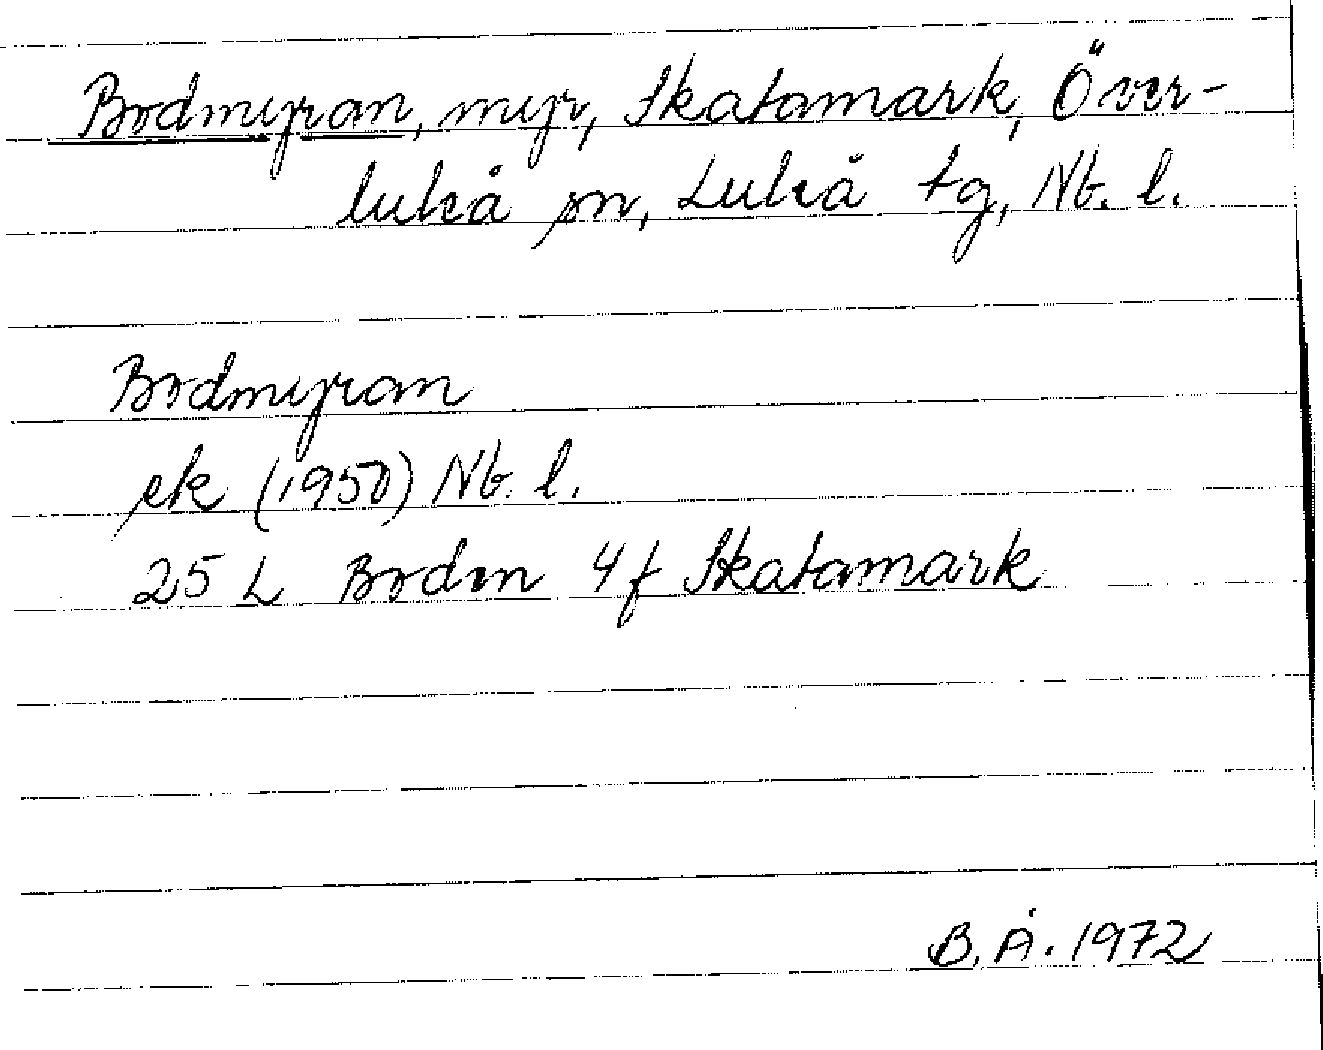 Bodmyran, myr, Skatamark, Över-
luleå sn, Luleå tg, Nb. l.
Bodmyran
ek (1950) Nb. l.
25 L Boden 4f Skatamark
B. Å. 1972